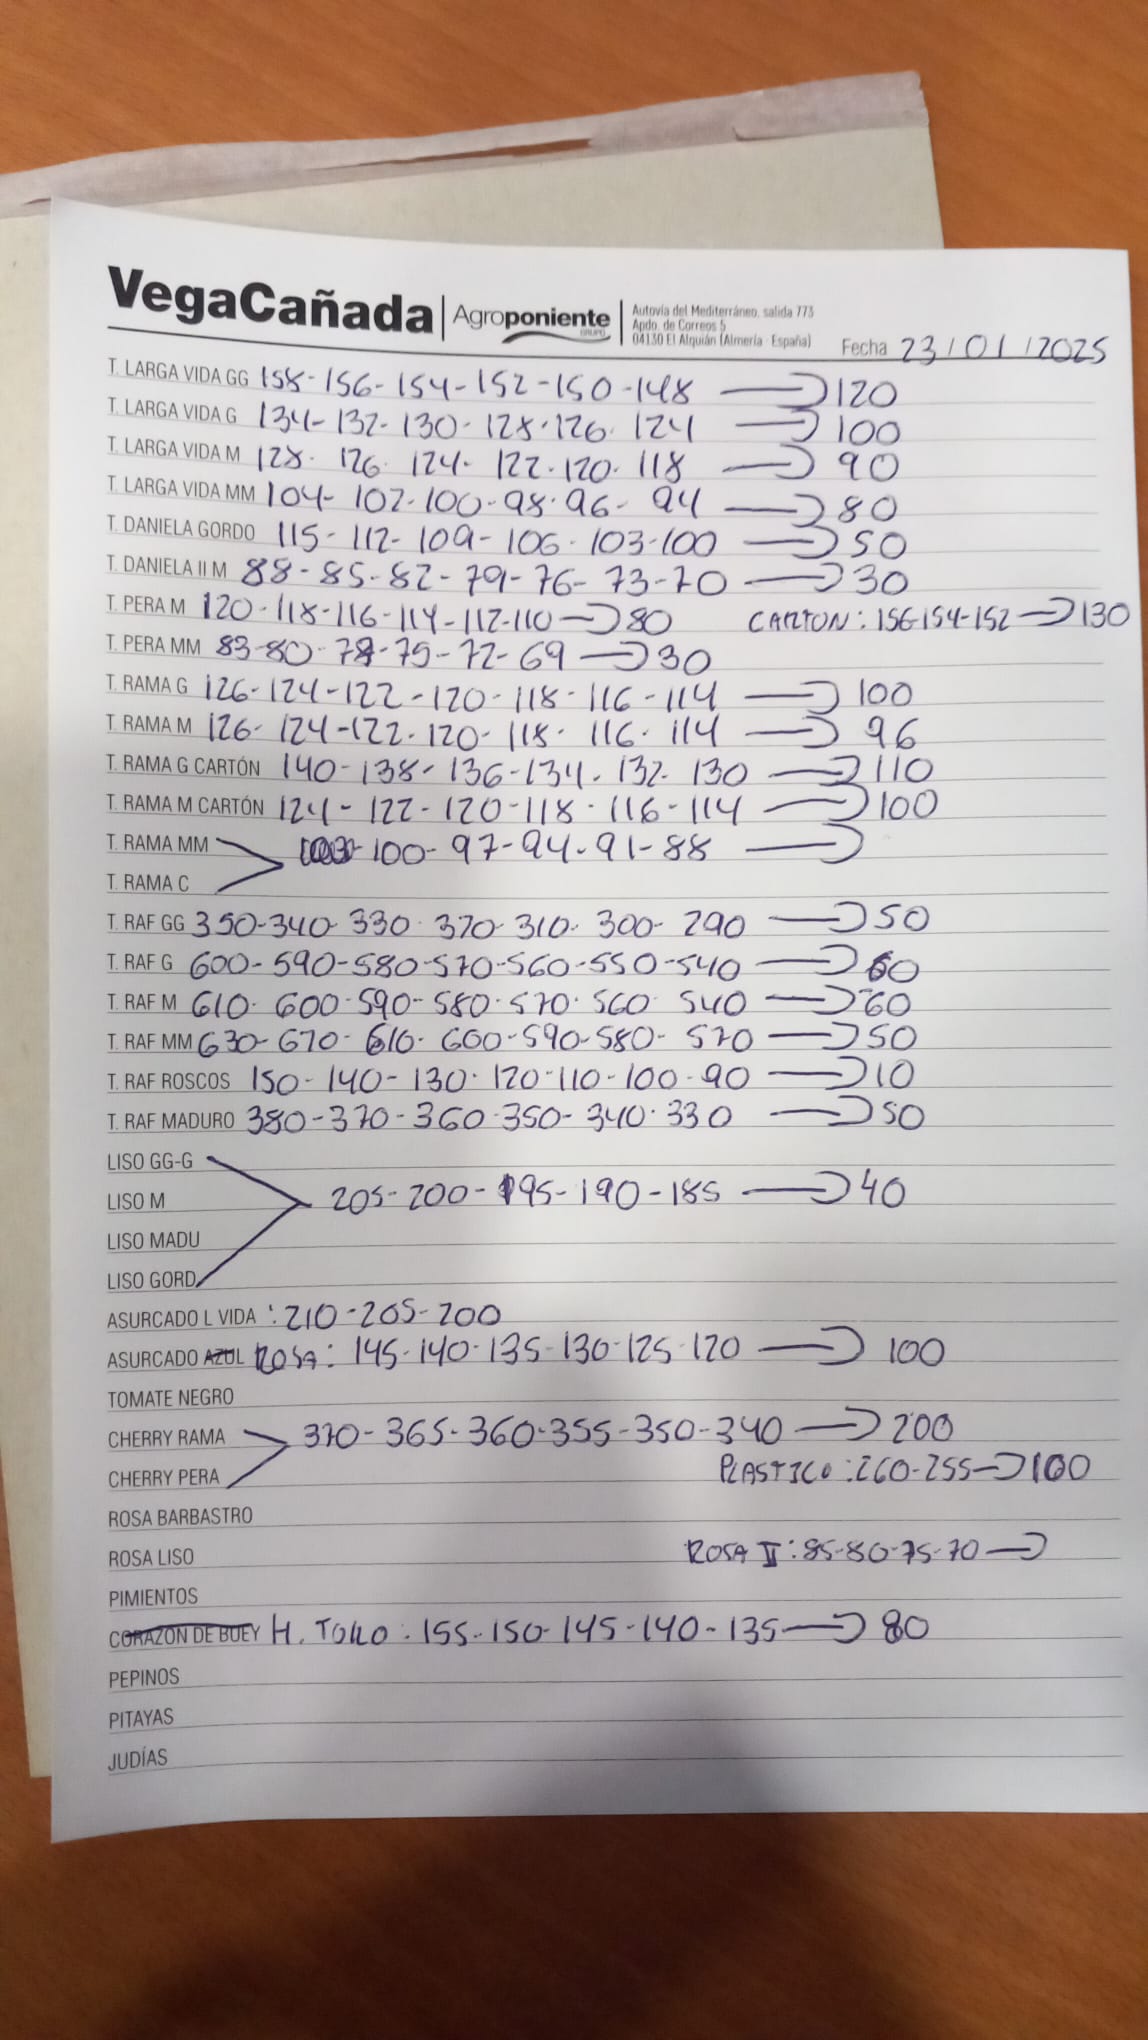 VegaCañada | Agroponiente GRUPO | Autovía del Mediterráneo, salida 773
Apdo. de Correos 5
04130 El Alquián (Almería - España)
Fecha 23/01/2025
T. LARGA VIDA GG 158-156-154-152-150-148 → 120
T. LARGA VIDA G 134-132-130-128-126-124 → 100
T. LARGA VIDA M 128-126-124-122-120-118 → 90
T. LARGA VIDA MM 104-102-100-98-96-94 → 80
T. DANIELA GORDO 115-112-109-106-103-100 → 50
T. DANIELA II M 88-85-82-79-76-73-70 → 30
T. PERA M 120-118-116-114-112-110 → 80 CARTON: 156-154-152 → 130
T. PERA MM 83-80-78-75-72-69 → 30
T. RAMA G 126-124-122-120-118-116-114 → 100
T. RAMA M 126-124-122-120-118-116-114 → 96
T. RAMA G CARTÓN 140-138-136-134-132-130 → 110
T. RAMA M CARTÓN 124-122-120-118-116-114 → 100
T. RAMA MM 100-97-94-91-88 →
T. RAMA C
T. RAF GG 350-340-330-320-310-300-290 → 50
T. RAF G 600-590-580-570-560-550-540 → 60
T. RAF M 610-600-590-580-570-560-540 → 60
T. RAF MM 630-620-610-600-590-580-570 → 50
T. RAF ROSCOS 150-140-130-120-110-100-90 → 10
T. RAF MADURO 380-370-360-350-340-330 → 50
LISO GG-G
LISO M 205-200-195-190-185 → 40
LISO MADU
LISO GORD
ASURCADO L VIDA : 210-205-200
ASURCADO AZUL ROSA: 145-140-135-130-125-120 → 100
TOMATE NEGRO
CHERRY RAMA 370-365-360-355-350-340 → 200
CHERRY PERA PLASTICO: 260-255 → 100
ROSA BARBASTRO
ROSA LISO ROSA II: 85-80-75-70 →
PIMIENTOS
CORAZON DE BUEY H. TORO: 155-150-145-140-135 → 80
PEPINOS
PITAYAS
JUDÍAS